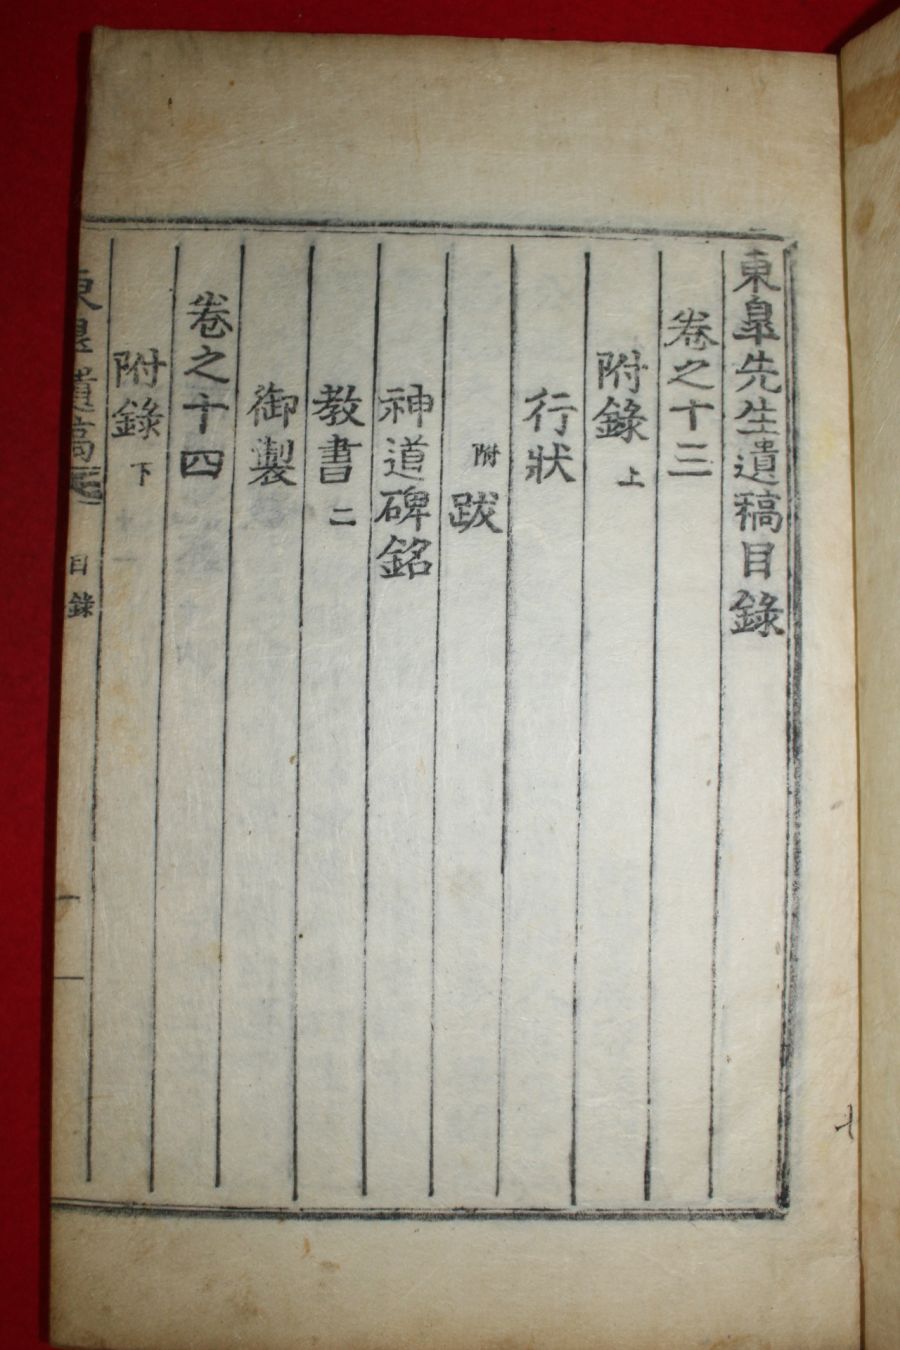 東皐先生遺稿目錄
卷之十三
附錄上
行狀
附跋
神道碑銘
教書二
御製
卷之十四
附錄下
東皐遺稿 目錄 一